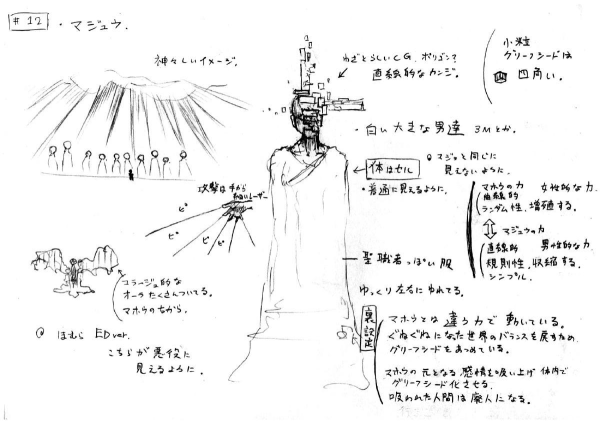 #12 ・マジュウ.
神々しいイメージ。
わざとらしいCG、ポリゴンで
直線的なカンジ。
小粒
グリーフシードは
四角い。
・白い大きな男達 3Mとか。
体はセル
◎マジョと同じに
見えないように.
・普通に見えるように。
攻撃は手から
レーザー
ピ
ピ
ピ
ピ
マホウの力 女性的な力.
曲線的
ランダム性、増殖する。
マジュウの力
直線的 男性的な力
規則性、収縮する。
シンプル.
聖職者っぽい服
ゆっくり左右にゆれてる。
コラージュ的な
オーラたくさんついてる。
マホウのちから。
◎ ほむら EDver.
こちらが悪役に
見えるように.
裏設定
マホウとは違う力で動いている。
ぐねぐねになった世界のバランスを戻すため
グリーフシードをあつめている。
マホウの元となる感情を吸い上げ体内で
グリーフシード化させる.
吸われた人間は廃人になる。